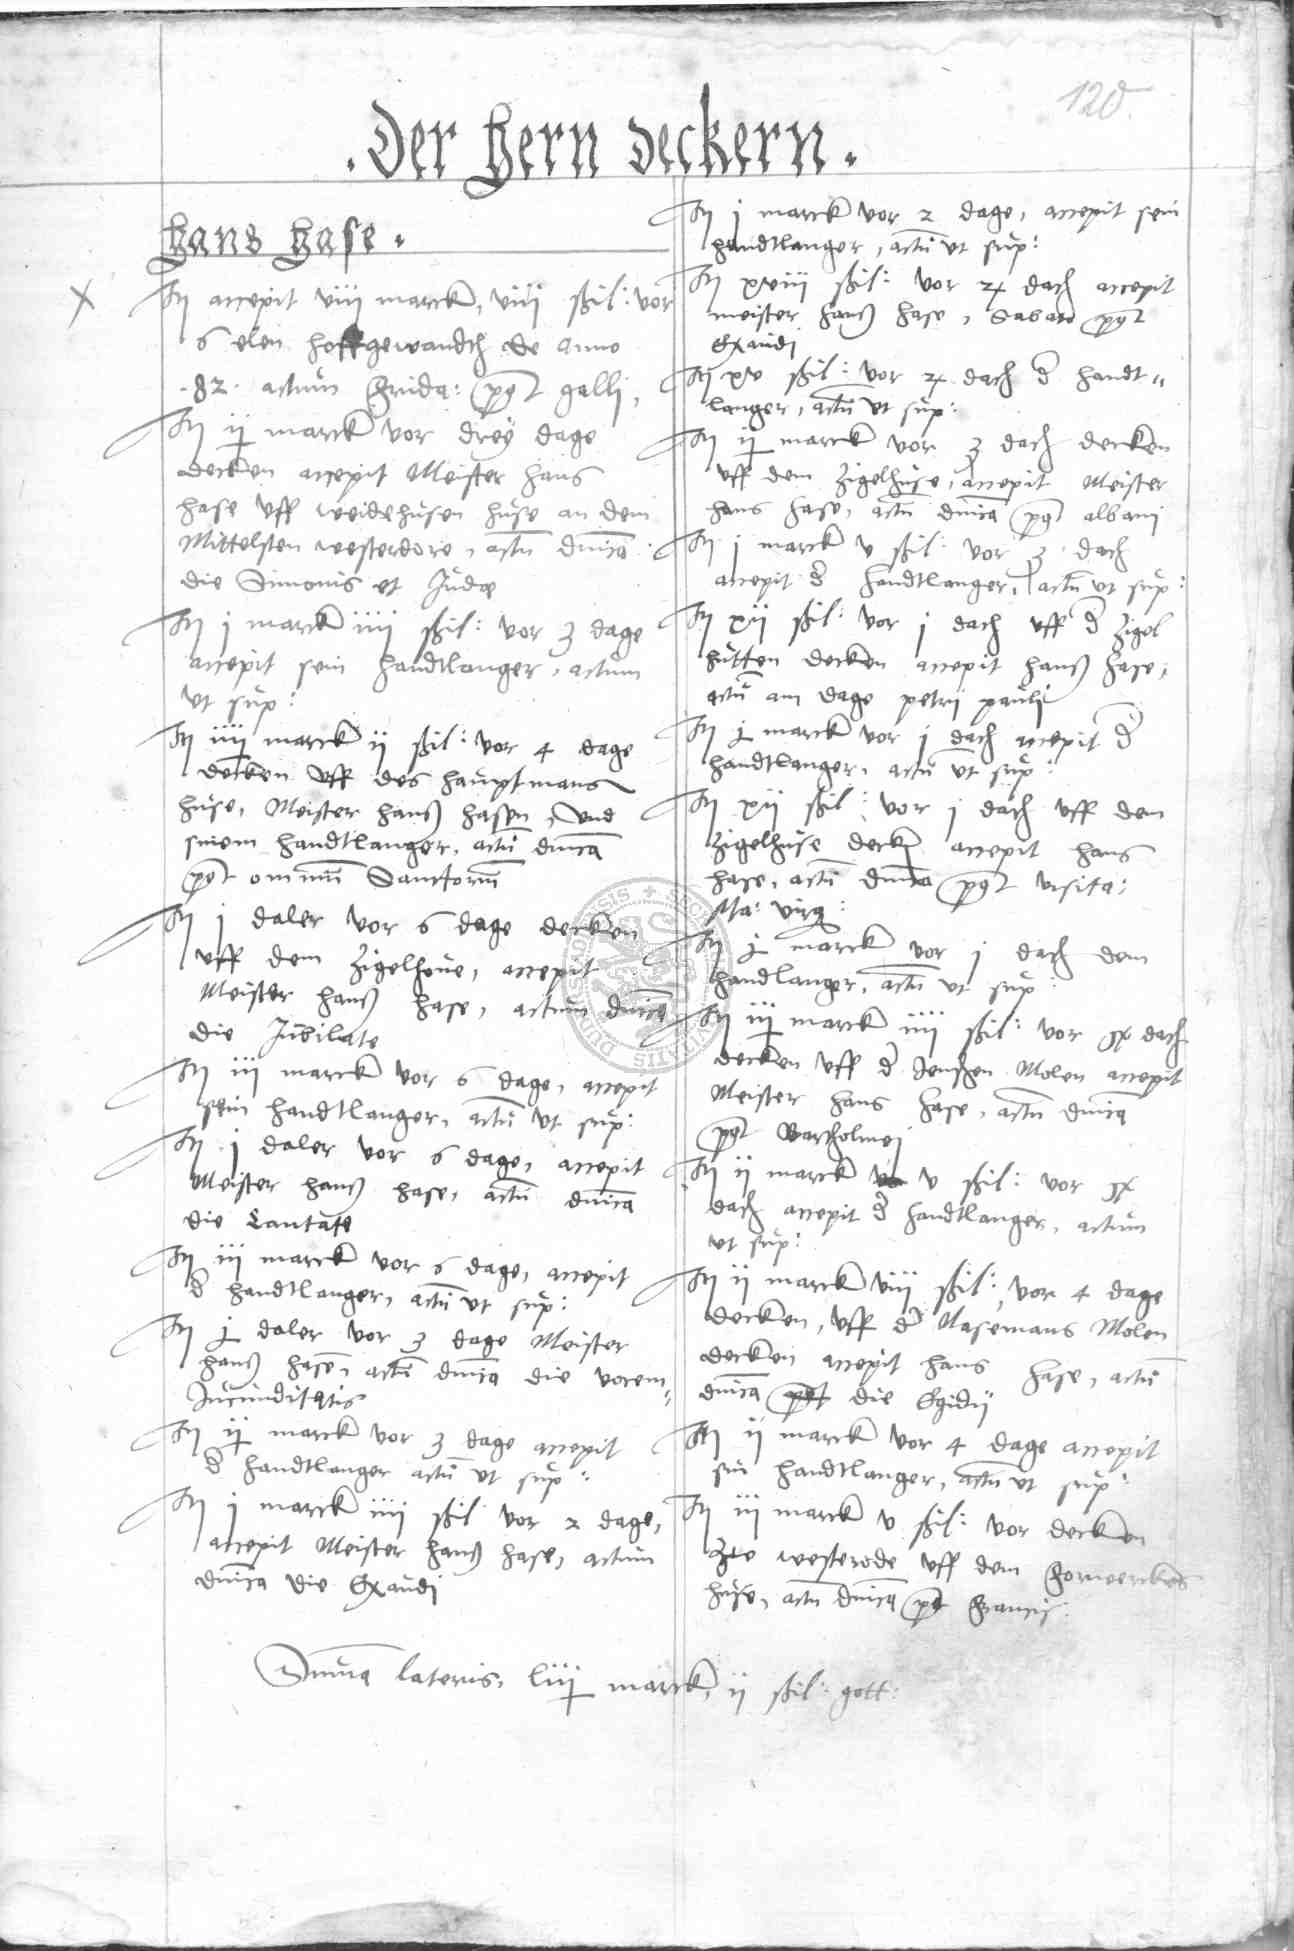 120.
. Der Hern deckern .
Hans Hase .
It accepit viii marck, viiii ßhil: vor
6 elen hoffgewandth de anno
.82. actum Frida: post galli,
It ii marck vor drey dage
decken accepit Meister Hans
Hase vff weidehusen huse an dem
Mittelsten westerdore, actu dnica
die Simonis et Judæ
It j marck iiii ßhil: vor 3 dage
accepit sein handtlanger, actum
vt sup:
It iiii marck ii ßhil: vor 4 dage
decken vff des hauptmans
huse, Meister Hanß Hasen, vnd
sinem handtlanger, actu dnica
post omnium Sanctorum
It j daler vor 6 dage decken
vff dem Zigelhoue, accepit
Meister Hanß Hase, actum dnica
die Jubilate
It iii marck vor 6 dage, accepit
sein handtlanger, actu vt sup:
It j daler vor 6 dage, accepit
Meister Hanß Hase, actu dnica
die Cantate
It iii marck vor 6 dage, accepit
d handtlanger, actu vt sup:
It j daler vor 3 dage Meister
Hanß Hase, actu dnica die vocem
Jucunditatis
It ii marck vor 3 dage accepit
d handtlanger actu vt sup:
It j marck iiii ßhil vor 2 dage,
accepit Meister Hanß Hase, actum
dnica die Exaudi
It j marck vor 2 dage, accepit sein
handtlanger, actu vt sup:
It xviii ßhil: vor 2 dach accepit
meister Hanß Hase, Sabato post
Exaudi
It xv ßhil: vor 2 dach d handt"
langer, actu vt sup:
It ii marck vor 3 dach decken
vff dem Zigelhuse, accepit Meister
Hans Hase, actu dnica post albani
It j marck v ßhil: vor 3 dach
accepit d handtlanger, actu vt sup:
It xii ßhil: vor j dach vff d Zigel
hutten decken accepit Hanß Hase,
actu am dage petri pauli
It j marck vor j dach accepit d
handtlanger, actu vt sup:
It xii ßhil: vor j dach vff dem
Zigelhuse decken accepit Hans
Hase, actu dnica post visita:
Ma: virg:
It j marck vor j dach dem
handlanger, actu vt sup:
It iii marck iiii ßhil: vor dach
decken vff d Molen accepit
Meister Hans Hase, actu dnica
post Bartholmei
It ii marck v ßhil: vor
dach accepit d handtlanger, actum
vt sup:
It ii marck viii ßhil: vor 4 dage
decken, vff d Masemans Molen
decken accepit Hans Hase, actu
dnica post die Egidii
It ii marck vor 4 dage accepit
sin handtlanger, actu vt sup:
It iii marck v ßhil: vor decken
zte westerode vff dem Forwerckes
huse, actu dnica post Francis:
Summa lateris, liii marck, ii ßhil: gott: